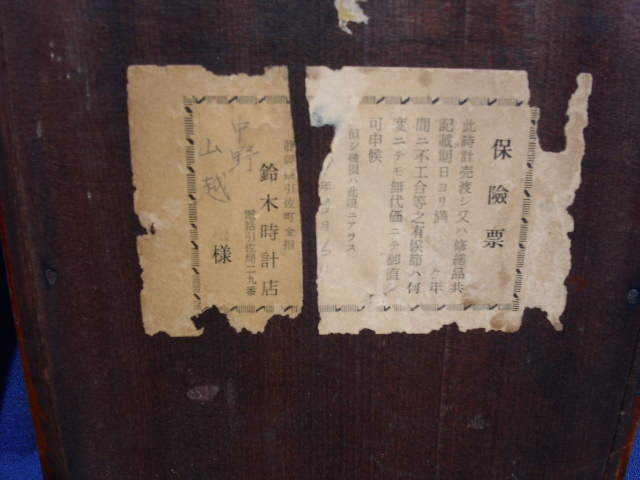 保險票
此時計売渡シ又ハ修繕品共
記載期日ヨリ満 ヶ年
間ニ不工合等之有候節ハ何
度ニテモ無代価ニテ御直
可申候
但シ破損ハ此項ニアラス
年 月
引佐町金指
鈴木時計店
電話引佐局二九番
中野
山越
様